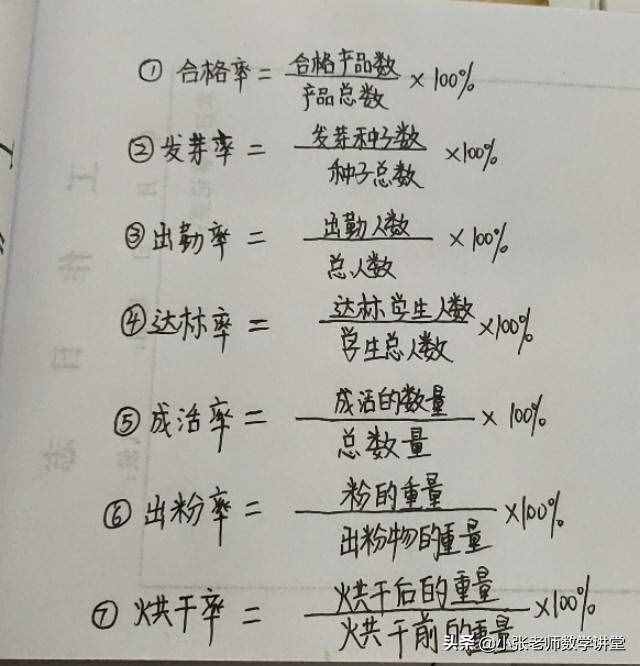 ① 合格率 = 合格产品数/产品总数 × 100%
② 发芽率 = 发芽种子数/种子总数 ×100%
③ 出勤率 = 出勤人数/总人数 × 100%
④ 达标率 = 达标学生人数/学生总人数 ×100%
⑤ 成活率 = 成活的数量/总数量 × 100%
⑥ 出粉率 = 粉的重量/出粉物的重量 ×100%
⑦ 烘干率 = 烘干后的重量/烘干前的重量 ×100%
头条 @小张老师数学讲堂